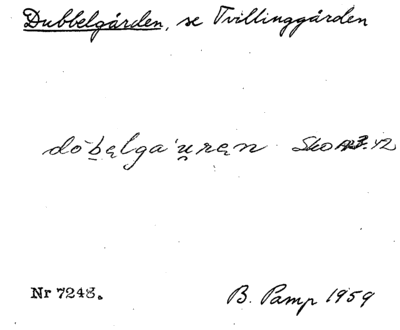 Dubbelgården, se Tvillinggården
döb̲ęlga'u̯ręn
Nr 7248.
B. Pamp 1959